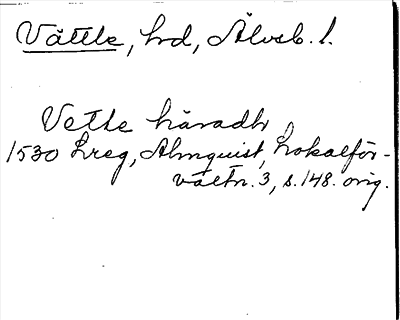 Vättle, hd, Älvsb. l.
Vettle häradh
1530 Lreg, Almquist, Lokalför-
valtn. 3, s. 148. orig.